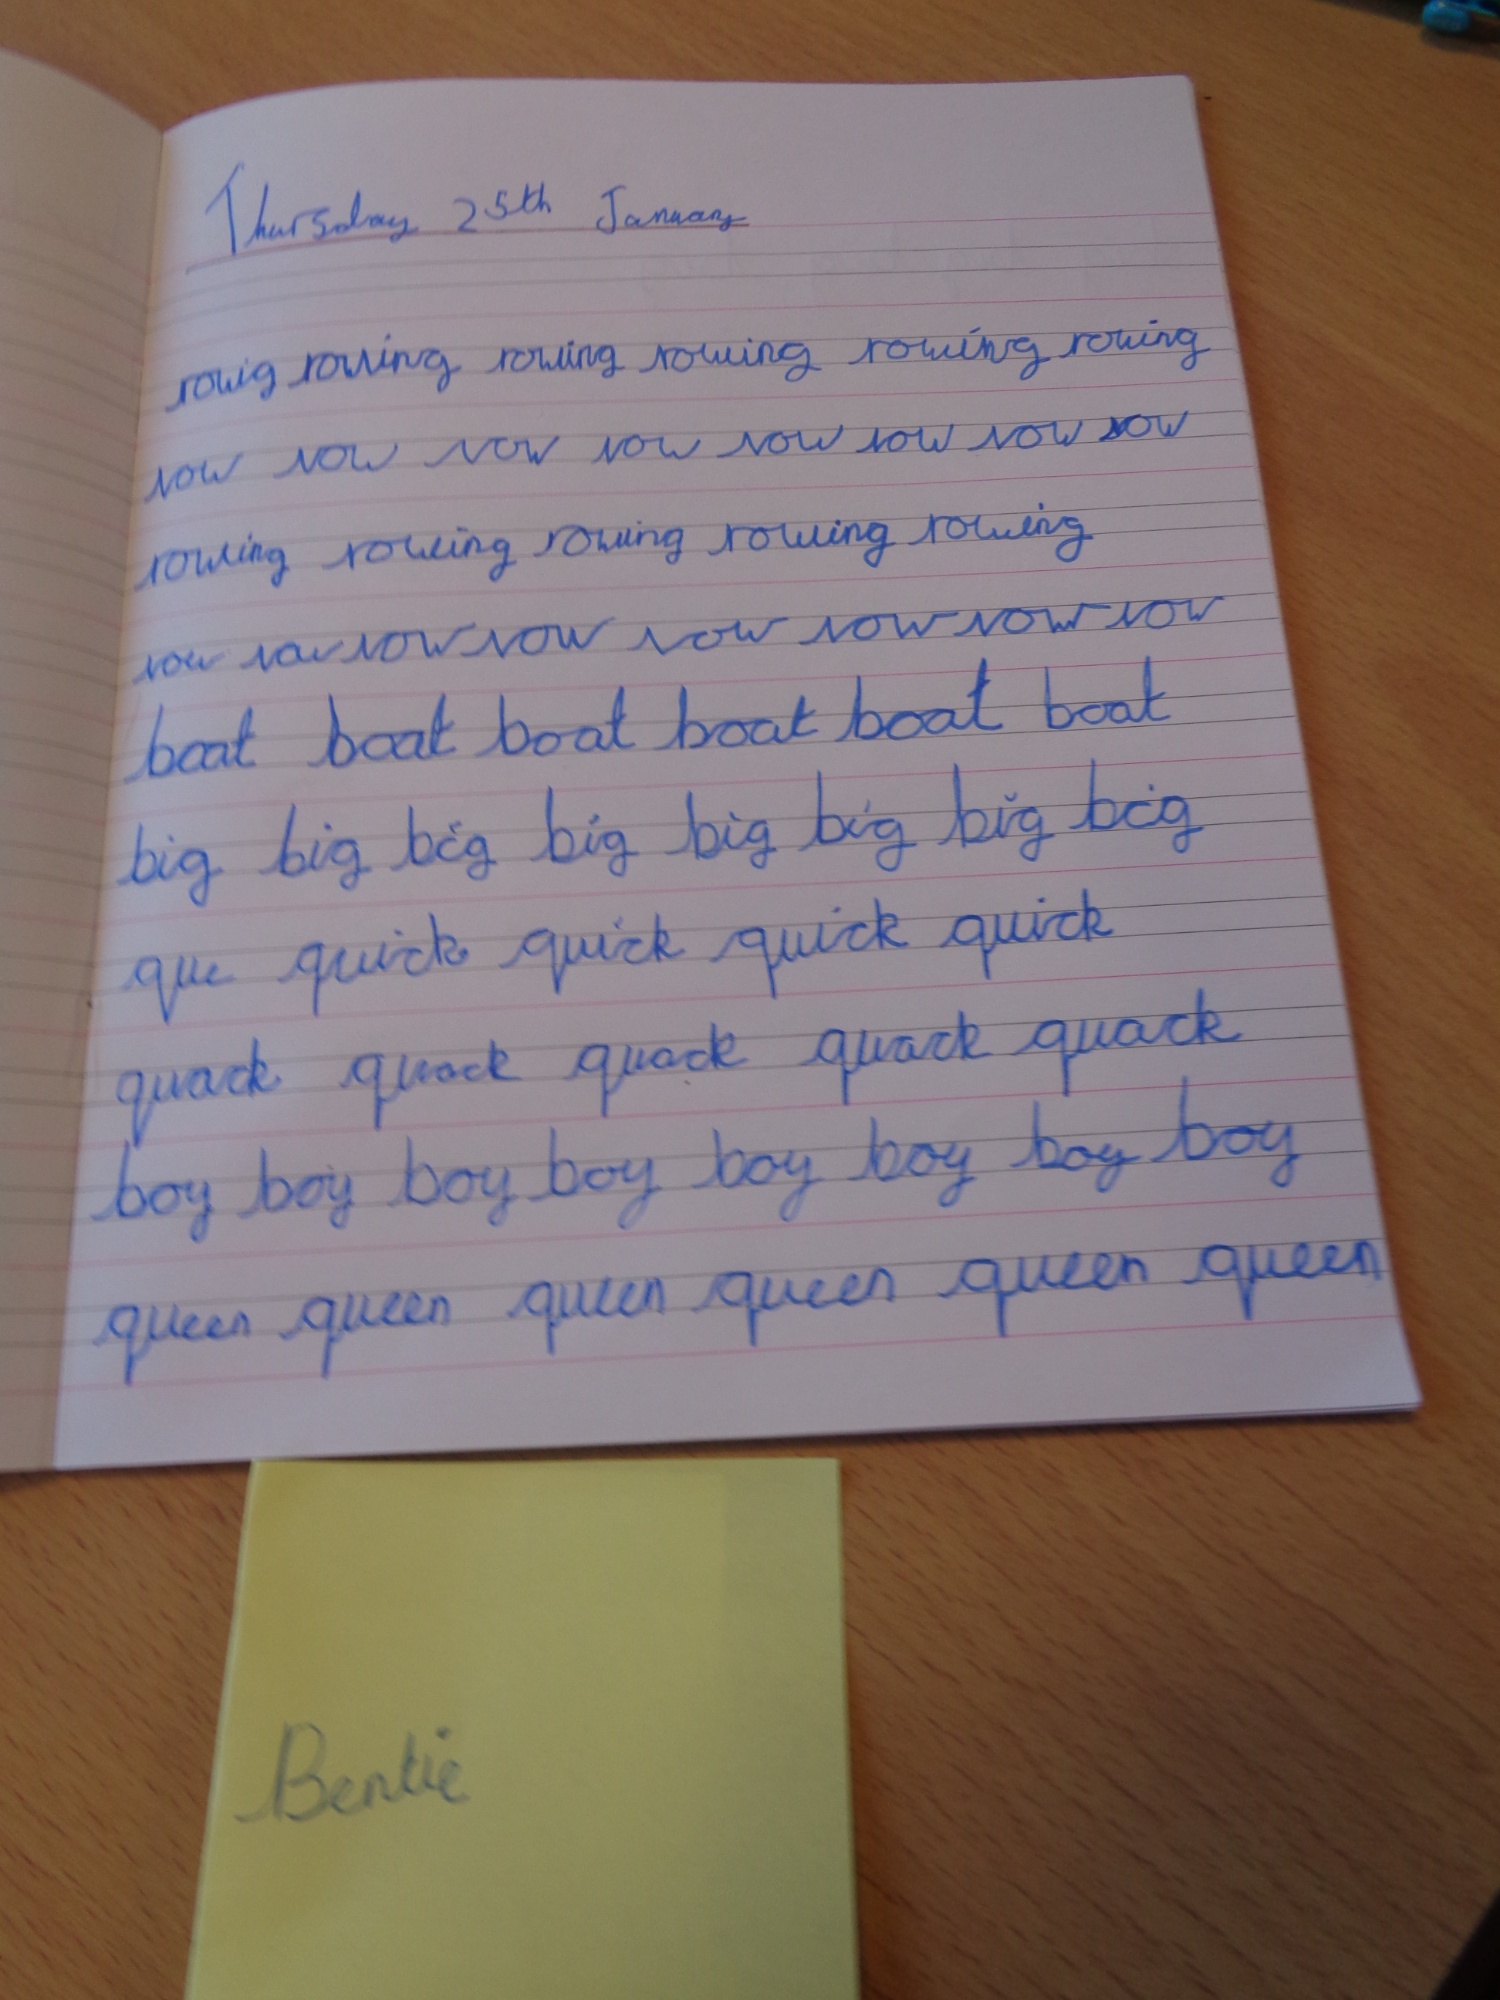 Thursday 25th January
rowig rowing rowing rowing rowing rowing
row row row row row row row row
rowing rowing rowing rowing rowing
row row row row row row row row
boat boat boat boat boat boat
big big big big big big big big
que quick quick quick quick
quack quack quack quack quack
boy boy boy boy boy boy boy boy
queen queen queen queen queen queen